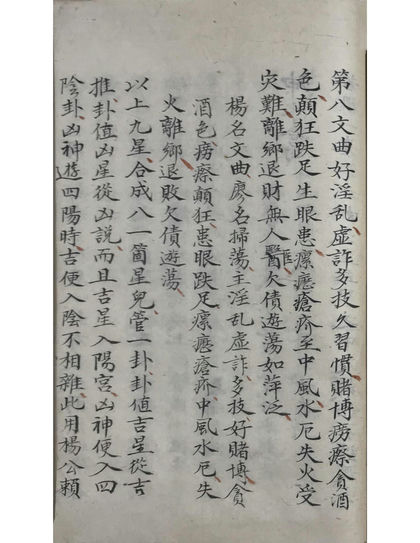 第八文曲好淫乱虚詐多技久習慣賭博癆瘵貪酒
色顛狂跌足生眼患瘰癧瘡疥至中風水厄失火受
灾難離鄉退財無人醫欠債遊蕩如萍泛
楊名文曲廖名掃蕩主淫乱虚詐多技好賭博貪
酒色癆瘵顛狂患眼跌足瘰癧瘡疥中風水厄失
火離鄉退敗欠債遊蕩
以上九星合成八一箇星兒管一卦卦值吉星從吉
推卦值凶星從凶說而且吉星入陽宮凶神便入四
陰卦凶神遊四陽時吉便入陰不相雜此用楊公賴